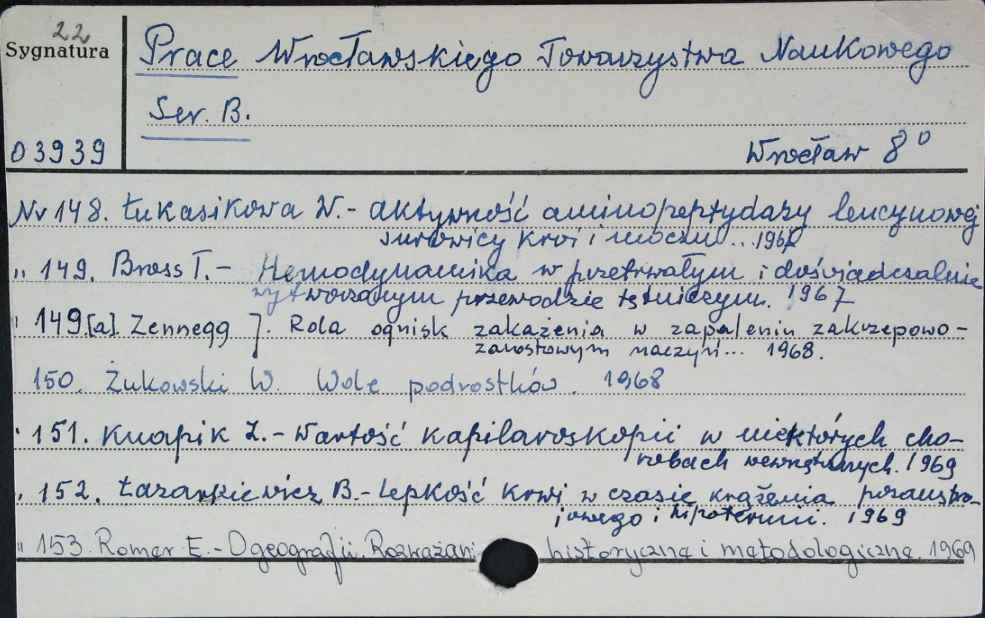 22
Sygnatura
03939
Prace Wrocławskiego Towarzystwa Naukowego
Ser. B.
Wrocław 8°
Nr 148. Łukasikowa W. - aktywność aminopeptydazy leucynowej
surowicy krwi i moczu... 1967
" 149. Bross T. - Hemodynamika w przetrwałym i doświadczalnie
wytworzonym przewodzie tętniczym. 1967
" 149.[a]. Zennegg J. Rola ognisk zakażenia w zapaleniu zakrzepowo-
zarostowym naczyń... 1968.
150. Żukowski W. Wole podrostków. 1968
" 151. Knapik Z. - Wartość kapilaroskopii w niektórych cho-
robach wewnętrznych. 1969
" 152. Łazarkiewicz B. - Lepkość krwi w czasie krążenia pozaustro-
jowego i hipotermii. 1969
" 153. Romer E. - O geografii. Rozważani historyczne i metodologiczne. 1969